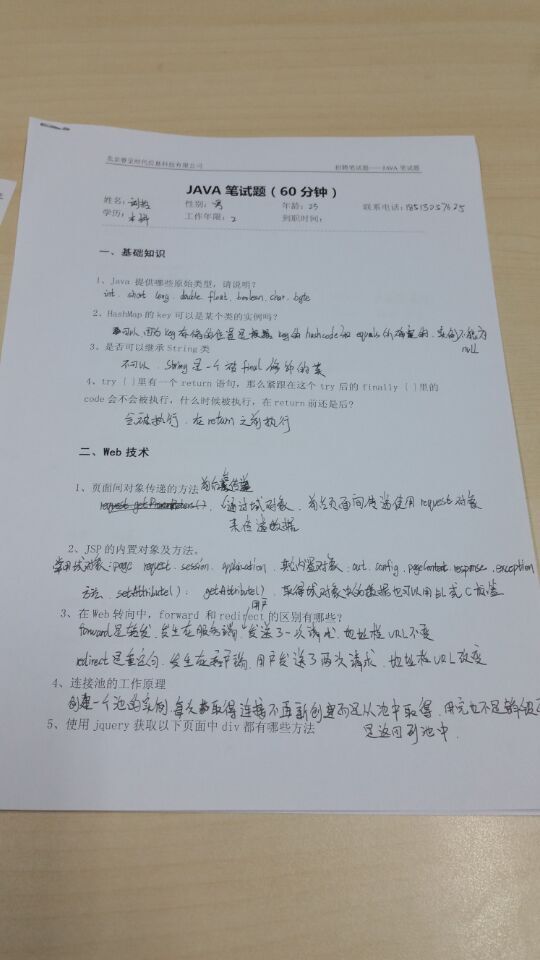 北京睿金时代信息科技有限公司 招聘笔试题——JAVA 笔试题
JAVA 笔试题（60 分钟）
姓名： 性别：男 年龄：25 联系电话：
学历：本科 工作年限：2 到职时间：
一、基础知识
1、Java 提供哪些原始类型，请说明？
int. short long. double float. boolean. char. byte
2、HashMap 的 key 可以是某个类的实例吗？
可以，因为key存储的位置是根据 key的 hashcode和 equals 的确定的，实例不能为
null
3、是否可以继承 String 类
不可以. String是一个被final修饰的类
4、try {}里有一个 return 语句，那么紧跟在这个 try 后的 finally {}里的
code 会不会被执行，什么时候被执行，在 return 前还是后?
会被执行. 在return之前执行
二、Web 技术
1、页面间对象传递的方法
通过域对象. 前台页面间传递使用request对象
来传递数据
2、JSP 的内置对象及方法。
常用域对象：page request. session. application. 其他内置对象：out. config. pageContext. response. exception
方法. setAttribute()： getAttribute(). 取得域对象中的数据也可以用EL或C标签
3、在 Web 转向中，forward 和 redirect 的区别有哪些?
forward是转发. 发生在服务端. 用户发送了一次请求. 地址栏URL不变
redirect是重定向. 发生在客户端. 用户发送了两次请求. 地址栏URL改变
4、连接池的工作原理
创建一个池的实例. 每次取得连接不再新创建而是从池中取得. 用完也不是
是返回到池中.
5、使用 jquery 获取以下页面中 div 都有哪些方法